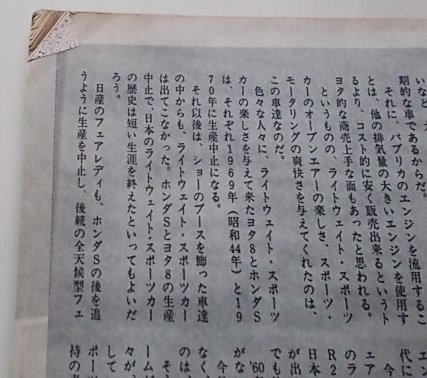 いなど
期的な車であるからだ。
それに、パブリカのエンジンを流用するこ
とは、他の排気量の大きいエンジンを使用す
るより、コスト的に安く販売出来るというト
ヨタ的な商売上手な面もあったと思われる。
というものの、ライトウェイト・スポーツ・
カーのオープンエアーの楽しさ、スポーツ・
モータリングの爽快さを与えてくれたのは、
この車達なのだ。
色々な人々に、ライトウェイト・スポーツ
カーの楽しさを与えて来たヨタ8とホンダS
は、それぞれ1969年(昭和44年)と19
70年に生産中止になる。
それ以後は、ショーのブースを飾った車達
の中からも、ライトウェイト・スポーツカー
は出てこなかった。ホンダSとヨタ8の生産
中止で、日本のライトウェイト・スポーツカー
の歴史は短い生涯を終えたといってもよいだ
ろう。
日産のフェアレディも、ホンダSの後を追
うように生産を中止し、後続の全天候型フェ
エン
代に
今
ェア
のラ
R2
日本
が出
でも
'60
がな
今
なく
のは、
そ
ーム
々が、
して
ポー
持の